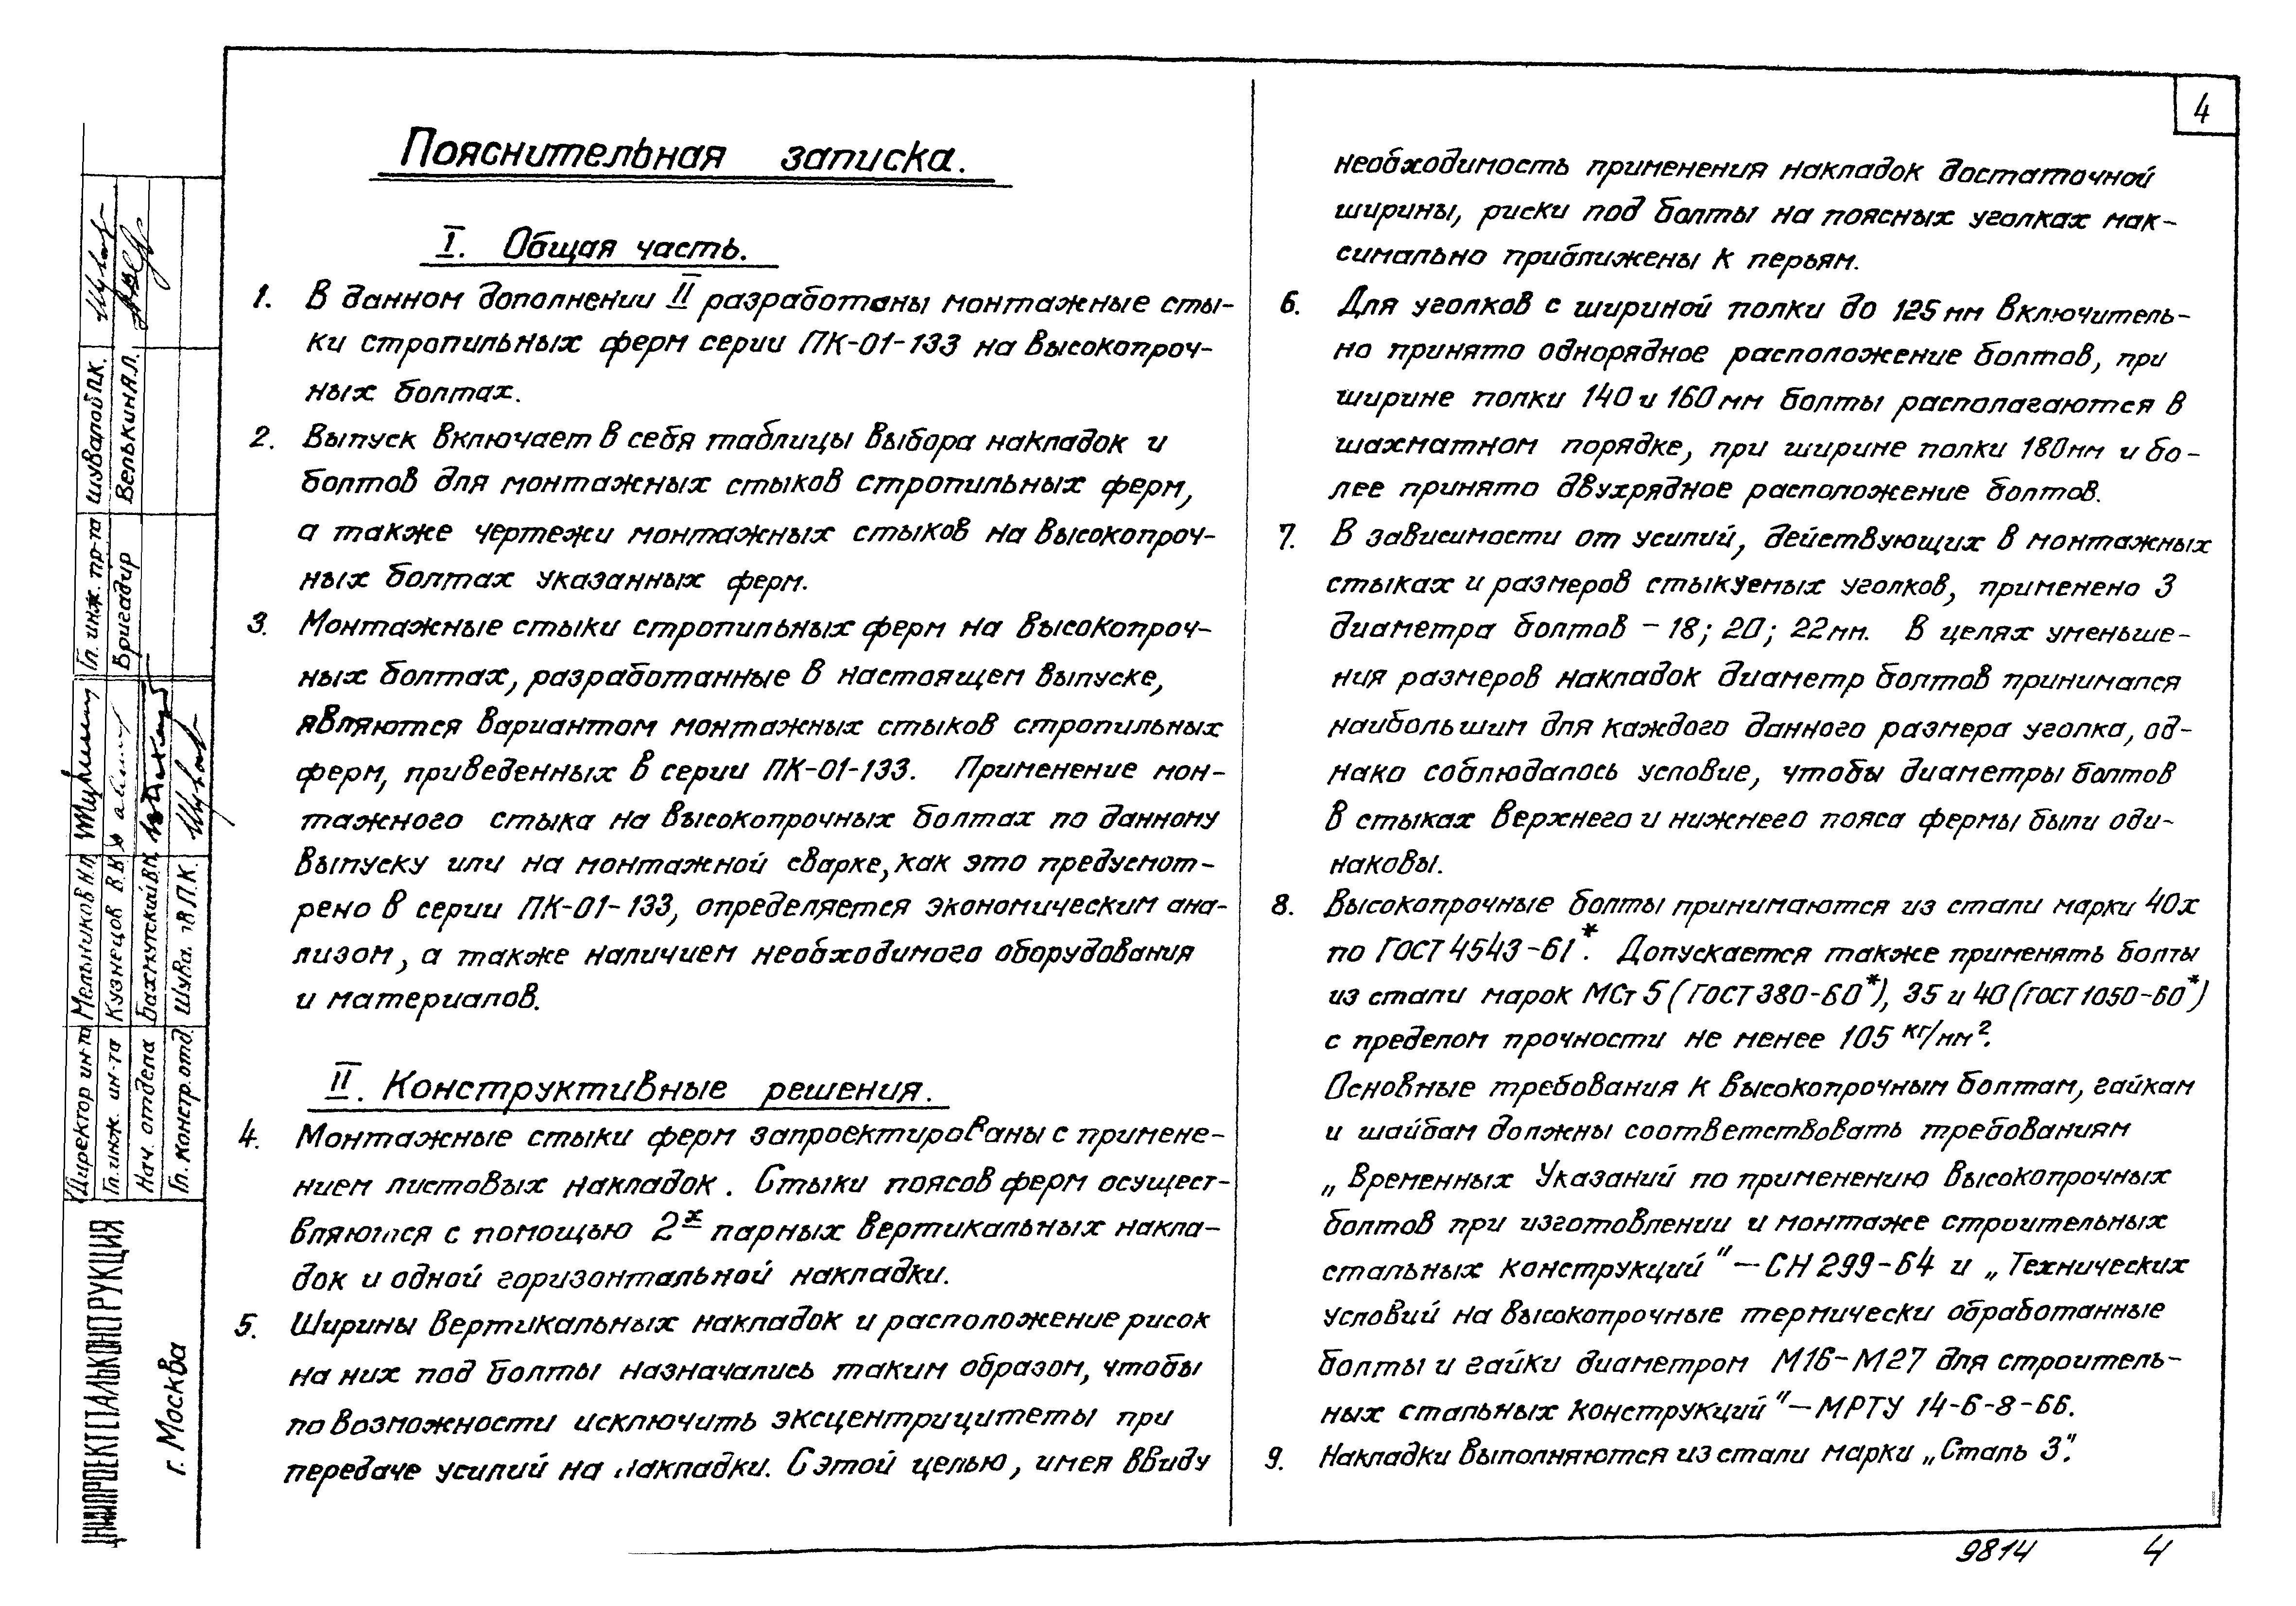 4
Пояснительная записка.
I. Общая часть.
1. В данном дополнении II разработаны монтажные сты-
ки стропильных ферм серии ПК-01-133 на высокопроч-
ных болтах.
2. Выпуск включает в себя таблицы выбора накладок и
болтов для монтажных стыков стропильных ферм,
а также чертежи монтажных стыков на высокопроч-
ных болтах указанных ферм.
3. Монтажные стыки стропильных ферм на высокопроч-
ных болтах, разработанные в настоящем выпуске,
являются вариантом монтажных стыков стропильных
ферм, приведенных в серии ПК-01-133. Применение мон-
тажного стыка на высокопрочных болтах по данному
выпуску или на монтажной сварке, как это предусмот-
рено в серии ПК-01-133, определяется экономическим ана-
лизом, а также наличием необходимого оборудования
и материалов.
II. Конструктивные решения.
4. Монтажные стыки ферм запроектированы с примене-
нием листовых накладок. Стыки поясов ферм осущест-
вляются с помощью 2х парных вертикальных накла-
док и одной горизонтальной накладки.
5. Ширины вертикальных накладок и расположение рисок
на них под болты назначались таким образом, чтобы
по возможности исключить эксцентрицитеты при
передаче усилий на накладки. С этой целью, имея ввиду
необходимость применения накладок достаточной
ширины, риски под болты на поясных уголках мак-
симально приближены к перьям.
6. Для уголков с шириной полки до 125 мм включитель-
но принято однорядное расположение болтов, при
ширине полки 140 и 160 мм болты располагаются в
шахматном порядке, при ширине полки 180 мм и бо-
лее принято двухрядное расположение болтов.
7. В зависимости от усилий, действующих в монтажных
стыках и размеров стыкуемых уголков, применено 3
диаметра болтов - 18; 20; 22 мм. В целях уменьше-
ния размеров накладок диаметр болтов принимался
наибольшим для каждого данного размера уголка, од-
нако соблюдалось условие, чтобы диаметры болтов
в стыках верхнего и нижнего пояса фермы были оди-
наковы.
8. Высокопрочные болты принимаются из стали марки 40х
по ГОСТ 4543-61*. Допускается также применять болты
из стали марок МСт 5 (ГОСТ 380-60*), 35 и 40 (ГОСТ 1050-60*)
с пределом прочности не менее 105 кг/мм².
Основные требования к высокопрочным болтам, гайкам
и шайбам должны соответствовать требованиям
„Временных Указаний по применению высокопрочных
болтов при изготовлении и монтаже строительных
стальных конструкций" – СН 299-64 и „Технических
условий на высокопрочные термически обработанные
болты и гайки диаметром М16-М27 для строитель-
ных стальных конструкций" – МРТУ 14-6-8-66.
9. Накладки выполняются из стали марки „Сталь 3".
9814 4
Гл. инж. пр-та Шувалов П.К.
Бригадир Велькин А.Л.
Директор ин-та Мельников Н.П.
Гл. инж. ин-та Кузнецов В.В.
Нач. отдела Бахмутский В.М.
Гл. констр. отд. П.К.
ЦНИИПРОЕКТСТАЛЬКОНСТРУКЦИЯ
г. Москва